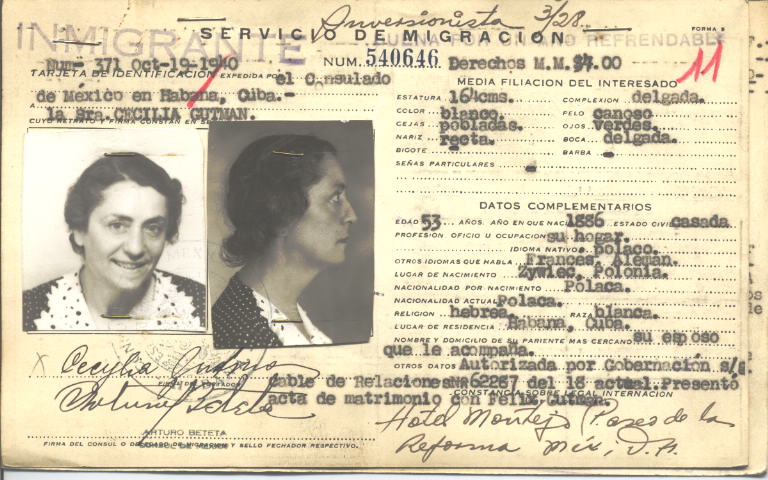 Inversionista 3/28
INMIGRANTE
SERVICIO DE MIGRACIÓN
FORMA 5
BUENA POR UN AÑO REFRENDABLE
11
Num- 371 Oct-19-1940
NUM. 540646
Derechos M.M. $4.00
TARJETA DE IDENTIFICACION EXPEDIDA POR el Consulado
de México en Habana, Cuba.-
A la Sra. CECILIA GUTMAN.
CUYO RETRATO Y FIRMA CONSTAN EN
MEDIA FILIACION DEL INTERESADO
ESTATURA 164cms. COMPLEXION delgada.
COLOR blanco. PELO canoso
CEJAS pobladas. OJOS verdes.
NARIZ recta. BOCA delgada.
BIGOTE - BARBA -
SEÑAS PARTICULARES -
DATOS COMPLEMENTARIOS
EDAD 53 AÑOS. AÑO EN QUE NACIO 1886 ESTADO CIVIL casada
PROFESION OFICIO U OCUPACION su hogar.
IDIOMA NATIVO polaco.
OTROS IDIOMAS QUE HABLA Frances, Alemán.
LUGAR DE NACIMIENTO Zywiec, Polonia.
NACIONALIDAD POR NACIMIENTO Polaca.
NACIONALIDAD ACTUAL Polaca.
RELIGION hebrea. RAZA blanca.
LUGAR DE RESIDENCIA Habana, Cuba.
NOMBRE Y DOMICILIO DE SU PARIENTE MAS CERCANO su esposo
que le acompaña.
OTROS DATOS Autorizada por Gobernación s/g
cable de Relaciones Nº 62267 del 18 actual. Presentó
CONSTANCIA SOBRE LEGAL INTERNACION
acta de matrimonio con Felix Gutman.
Hotel Montejo (Paseo de la
Reforma Mex, D.F.
X Cecylia Gutman
Arturo Beteta
ARTURO BETETA
CONSUL DE MEXICO
FIRMA DEL CONSUL O DELEGADO DE MIGRACION Y SELLO FECHADOR RESPECTIVO.